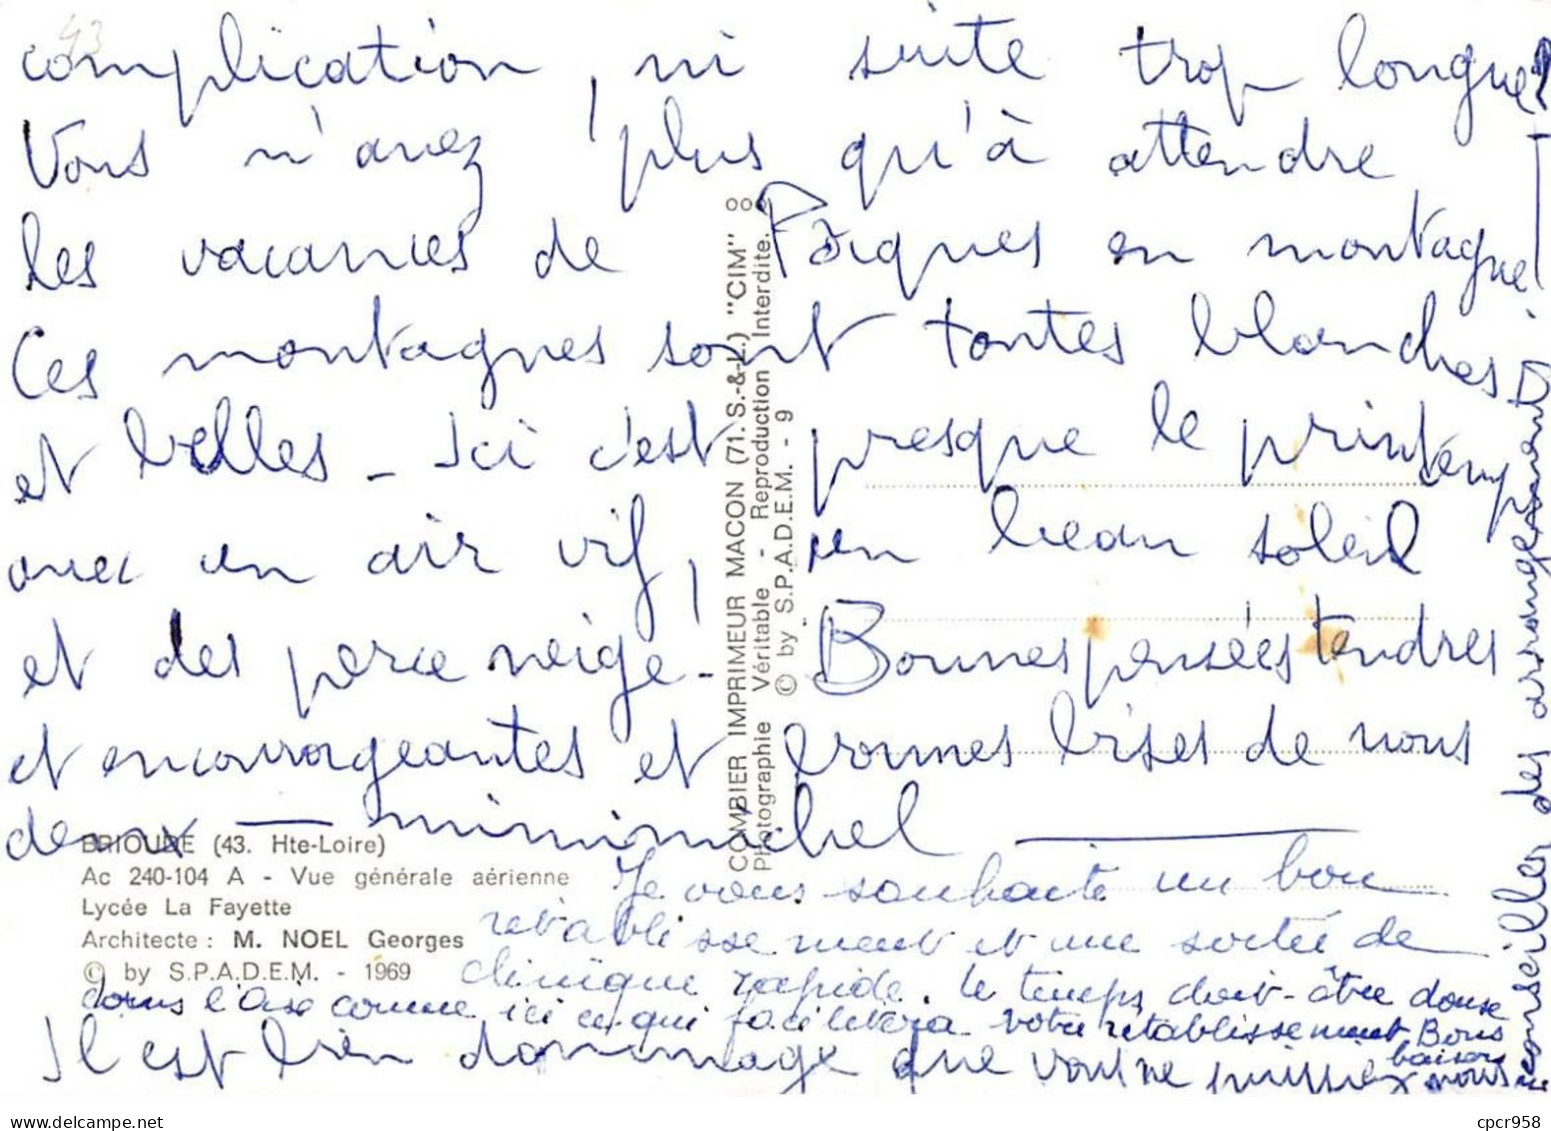 43
complication, ni suite trop longue?
Vous n'avez plus qu'à attendre
les vacances de Pâques en montagne!
Ces montagnes sont toutes blanches
et belles - Ici c'est presque le printemps
avec un air vif, un beau soleil
et des perce neige - Bonnes pensées tendres
et encourageantes et bonnes bises de nous
deux — mimimichel —
Je vous souhaite un bon
rétablissement et une sortie de
clinique rapide. Le temps doit-être douse
dans l'Oise comme ici ce qui facilitera votre rétablissement Bons
baisers
Il est bien dommage que vous ne puissiez nous
conseiller des arrangements
BRIOUDE (43. Hte-Loire)
Ac 240-104 A - Vue générale aérienne
Lycée La Fayette
Architecte : M. NOEL Georges
© by S.P.A.D.E.M. - 1969
COMBIER IMPRIMEUR MACON (71. S.-&-L.) "CIM"
Photographie Véritable - Reproduction Interdite.
© by S.P.A.D.E.M. - 9
cpcr958